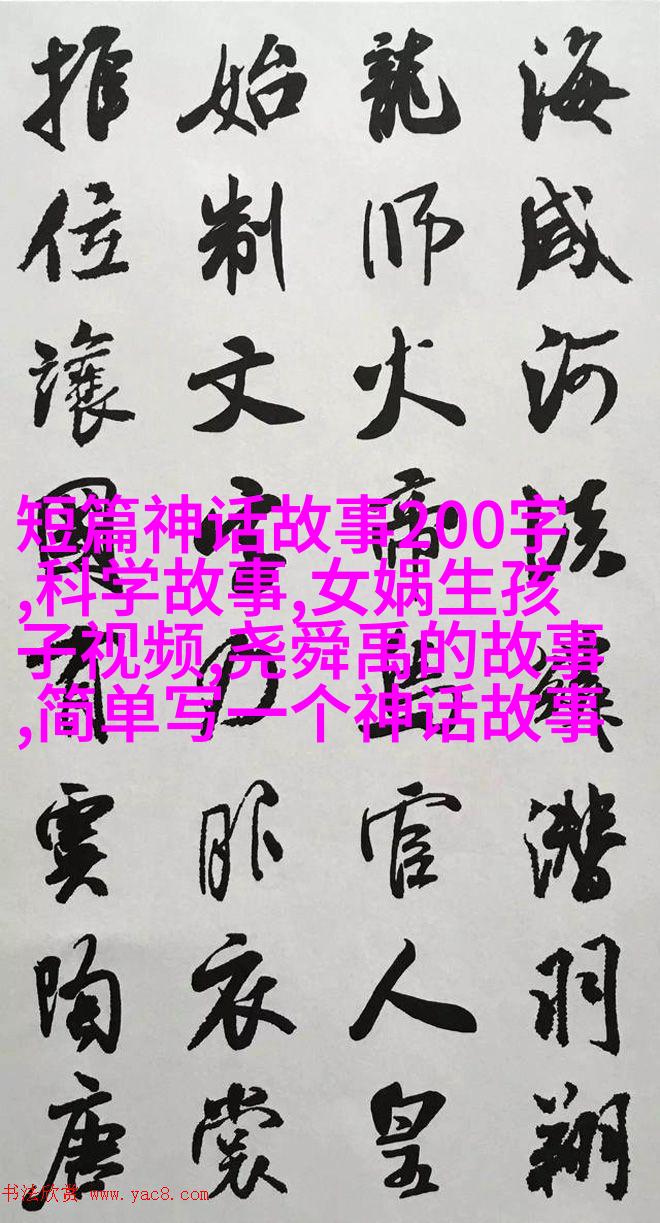 海咸河淡鱗潛羽翔
龍師火帝鳥官人皇
始制文字乃服衣裳
推位讓國有虞陶唐
短篇神话故事200字
,科学故事,女娲生孩
子视频,尧舜禹的故事
,简单写一个神话故事
书法欣赏 www.yac8.com